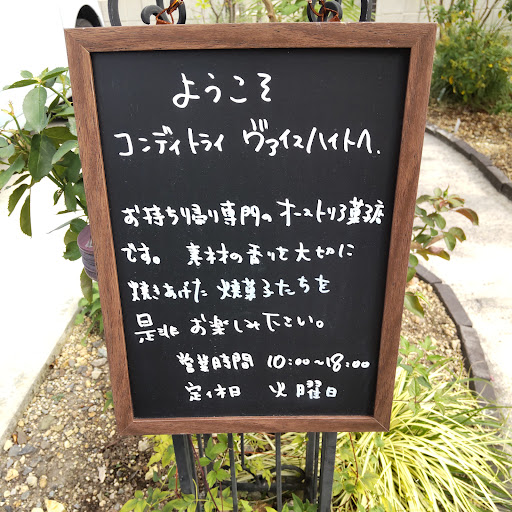 ようこそ
コンディトライ ヴァイスハイトへ.
お持ち帰り専門のオーストリア菓子店
です。素材の香りを大切に
焼きあげた 焼菓子たちを
是非 お楽しみ下さい。
営業時間 10:00～18:00
定休日 火曜日